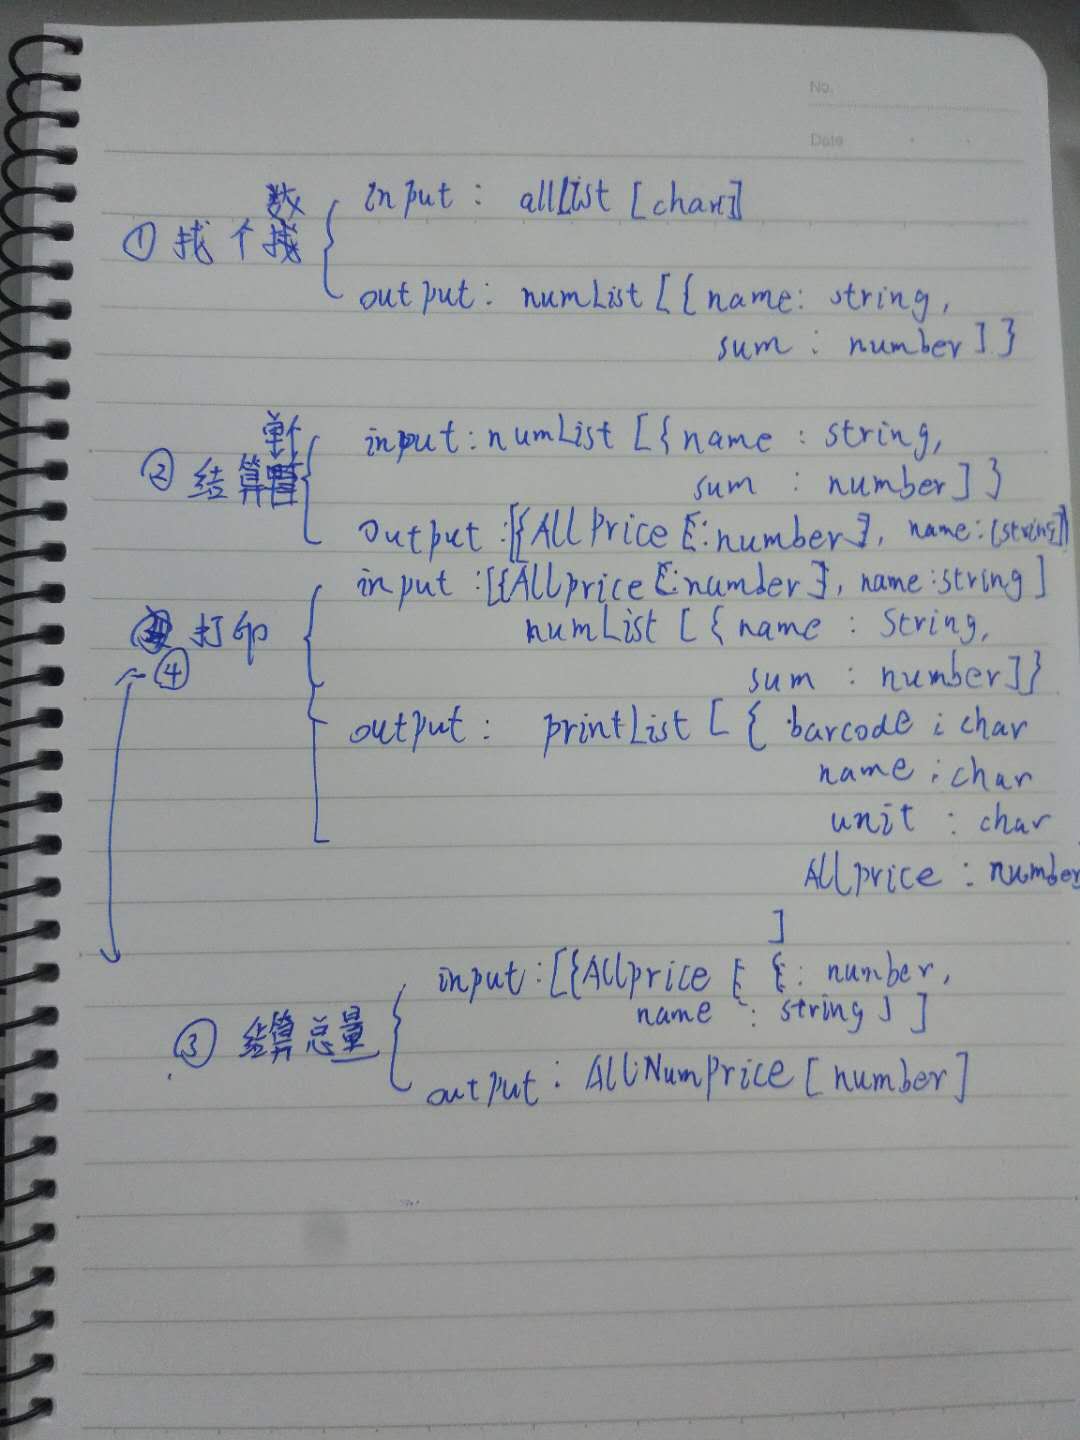 No.
Date
数
① 找 个
input : allList [char]
output : numList [{name: string,
sum : number]}
单个
② 结算
input : numList [{name : string,
sum : number]}
output :[{AllPrice [:number], name:[string]
input :[{Allprice [:number], name:string]
打印
④
numList [{name : String,
sum : number]}
output : printList [{ barcode : char
name : char
unit : char
Allprice : number
]
input :[{Allprice { : number,
name : string] ]
③ 结算总量
output : AllNumPrice [number]